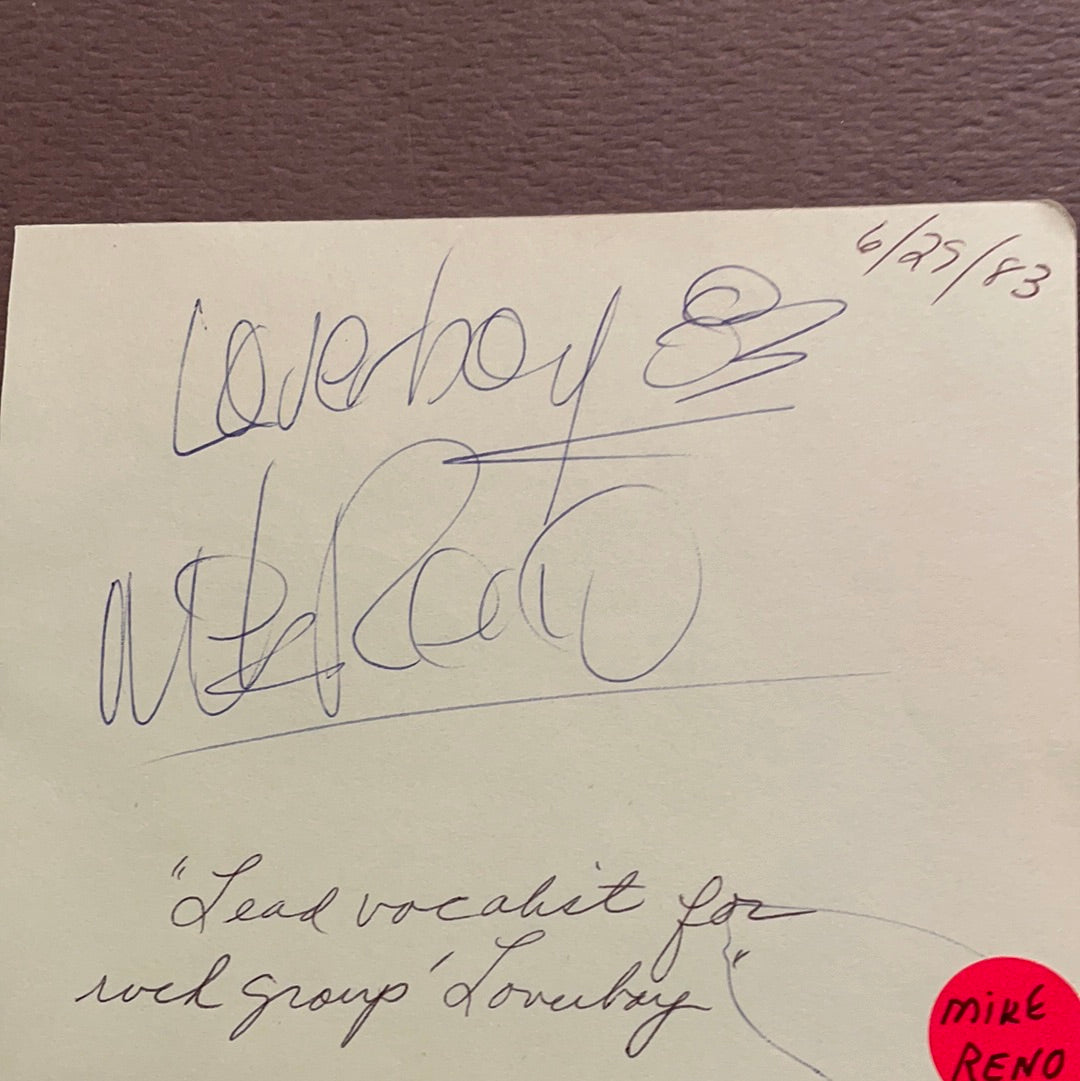 6/29/83
Loverboy 83
Mike Reno
"Lead vocalist for
rock group 'Loverboy"
MIKE
RENO